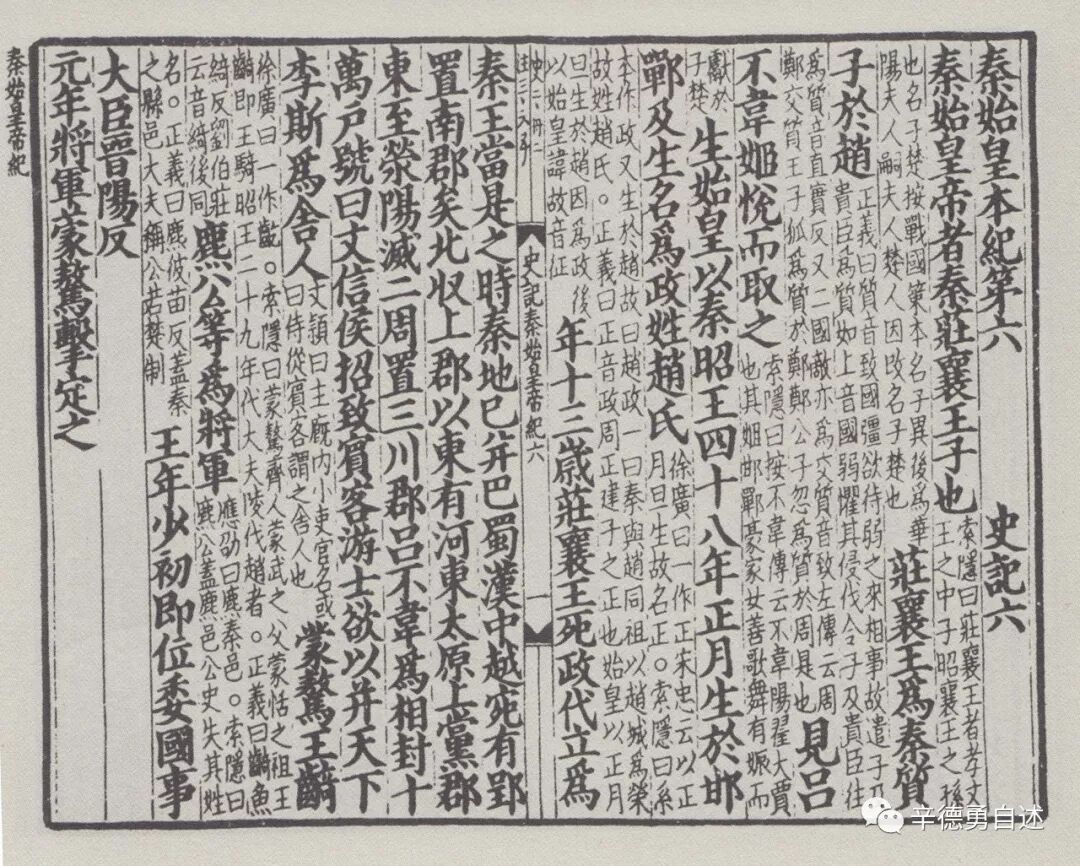 秦始皇本紀第六 史記六
秦始皇帝者秦莊襄王子也
索隱曰莊襄王者孝文
王之中子昭襄王之孫
也名子楚按戰國策本名子異後為華
陽夫人嗣夫人楚人因改名子楚也
莊襄王爲秦質
子於趙
正義曰質音致國彊欲待弱之來相事故遣子及
貴臣為質如上音國弱懼其侵伐令子及貴臣往
為質音直實反又二國敵亦為交質音致左傳云周
鄭交質王子狐為質於鄭鄭公子忽為質於周是也
見呂
不韋姬悅而取之
索隱曰按不韋傳云不韋陽翟大賈
也其姬邯鄲豪家女善歌舞有娠而
獻於
子楚
生始皇以秦昭王四十八年正月生於邯
鄲及生名爲政姓趙氏
徐廣曰一作正宋忠云以正
月旦生故名正。索隱曰系
本作政又生於趙故曰趙政一曰秦與趙同祖以趙城為榮
故姓趙氏。正義曰正音政周正建子之正也始皇以正月
旦生於趙因為政後
以始皇諱故音征
年十三歲莊襄王死政代立爲
史記秦始皇帝紀六 一
秦王當是之時秦地已并巴蜀漢中越宛有郢
置南郡矣北收上郡以東有河東太原上黨郡
東至滎陽滅二周置三川郡呂不韋爲相封十
萬户號曰文信侯招致賓客游士欲以并天下
李斯爲舍人
文頴曰主厩内小吏官名或
曰侍從賓客謂之舍人也
蒙驁王齮
徐廣曰一作齕。索隱曰蒙驁齊人蒙武之父蒙恬之祖王
齮即王騎昭王二十九年代大夫陵代趙者。正義曰齮魚
綺反劉伯莊
云音綺後同
麃公等爲將軍
應劭曰麃秦邑。索隱曰
麃公蓋麃邑公史失其姓
名。正義曰麃彼苗反蓋秦
之縣邑大夫稱公若楚制
王年少初即位委國事
大臣晉陽反
元年將軍蒙驁擊定之
秦始皇帝紀
辛德勇自述